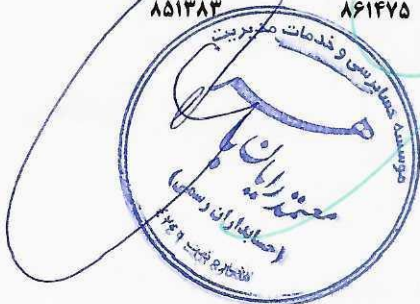 ۸۵۱۳۸۳ ۸۶۱۴۷۵
موسسه حسابرسی و خدمات مدیریت
معتمد رایان پارس
(حسابداران رسمی)
شماره ثبت